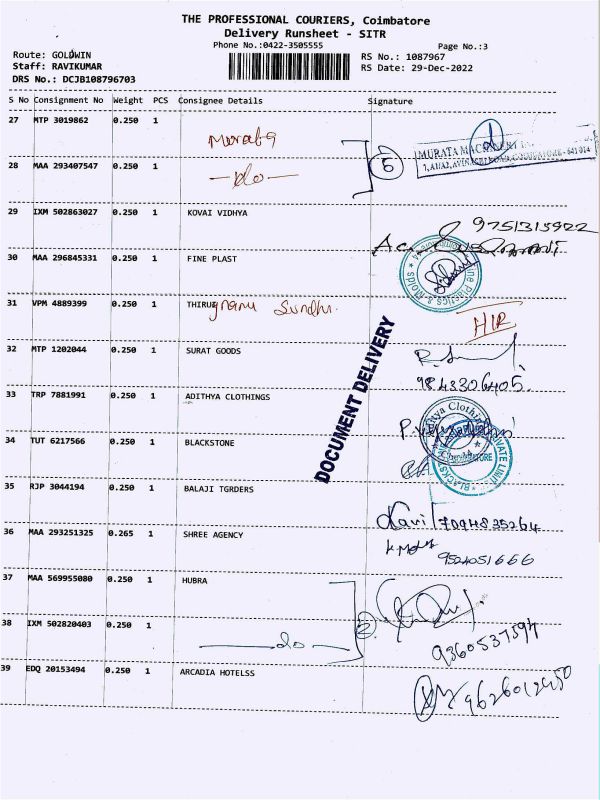 THE PROFESSIONAL COURIERS, Coimbatore
Delivery Runsheet - SITR
Phone No.:0422-3505555
Page No.:3
Route: GOLDWIN
RS No.: 1087967
Staff: RAVIKUMAR
RS Date: 29-Dec-2022
DRS No.: DCJB108796703
S No Consignment No Weight PCS Consignee Details Signature
27 MTP 3019862 0.250 1
Murata
28 MAA 293407547 0.250 1 -do-
5
MURATA MACHINERY
29 IXM 502863027 0.250 1 KOVAI VIDHYA
9751315922
30 MAA 296845331 0.250 1 FINE PLAST
31 VPM 4889399 0.250 1 THIRUgnana Sundhr.
HIR
32 MTP 1202044 0.250 1 SURAT GOODS
9843306405.
33 TRP 7881991 0.250 1 ADITHYA CLOTHINGS
34 TUT 6217566 0.250 1 BLACKSTONE
DOCUMENT DELIVERY
35 RJP 3044194 0.250 1 BALAJI TGRDERS
Ravi 7094835264
36 MAA 293251325 0.265 1 SHREE AGENCY
9524051666
37 MAA 569955080 0.250 1 HUBRA
38 IXM 502820403 0.250 1 -do-
2
9360537594
39 EDQ 20153494 0.250 1 ARCADIA HOTELSS